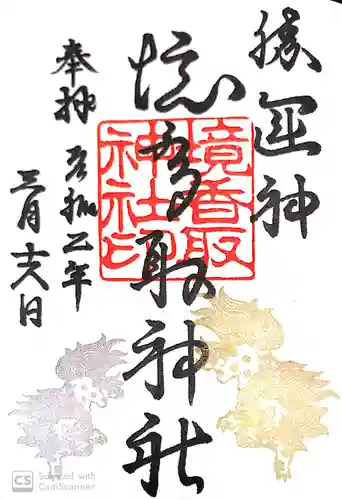 勝運神
境香取神社
境香取
神社印
奉拝 令和二年
三月十六日
CS Scanned with
CamScanner